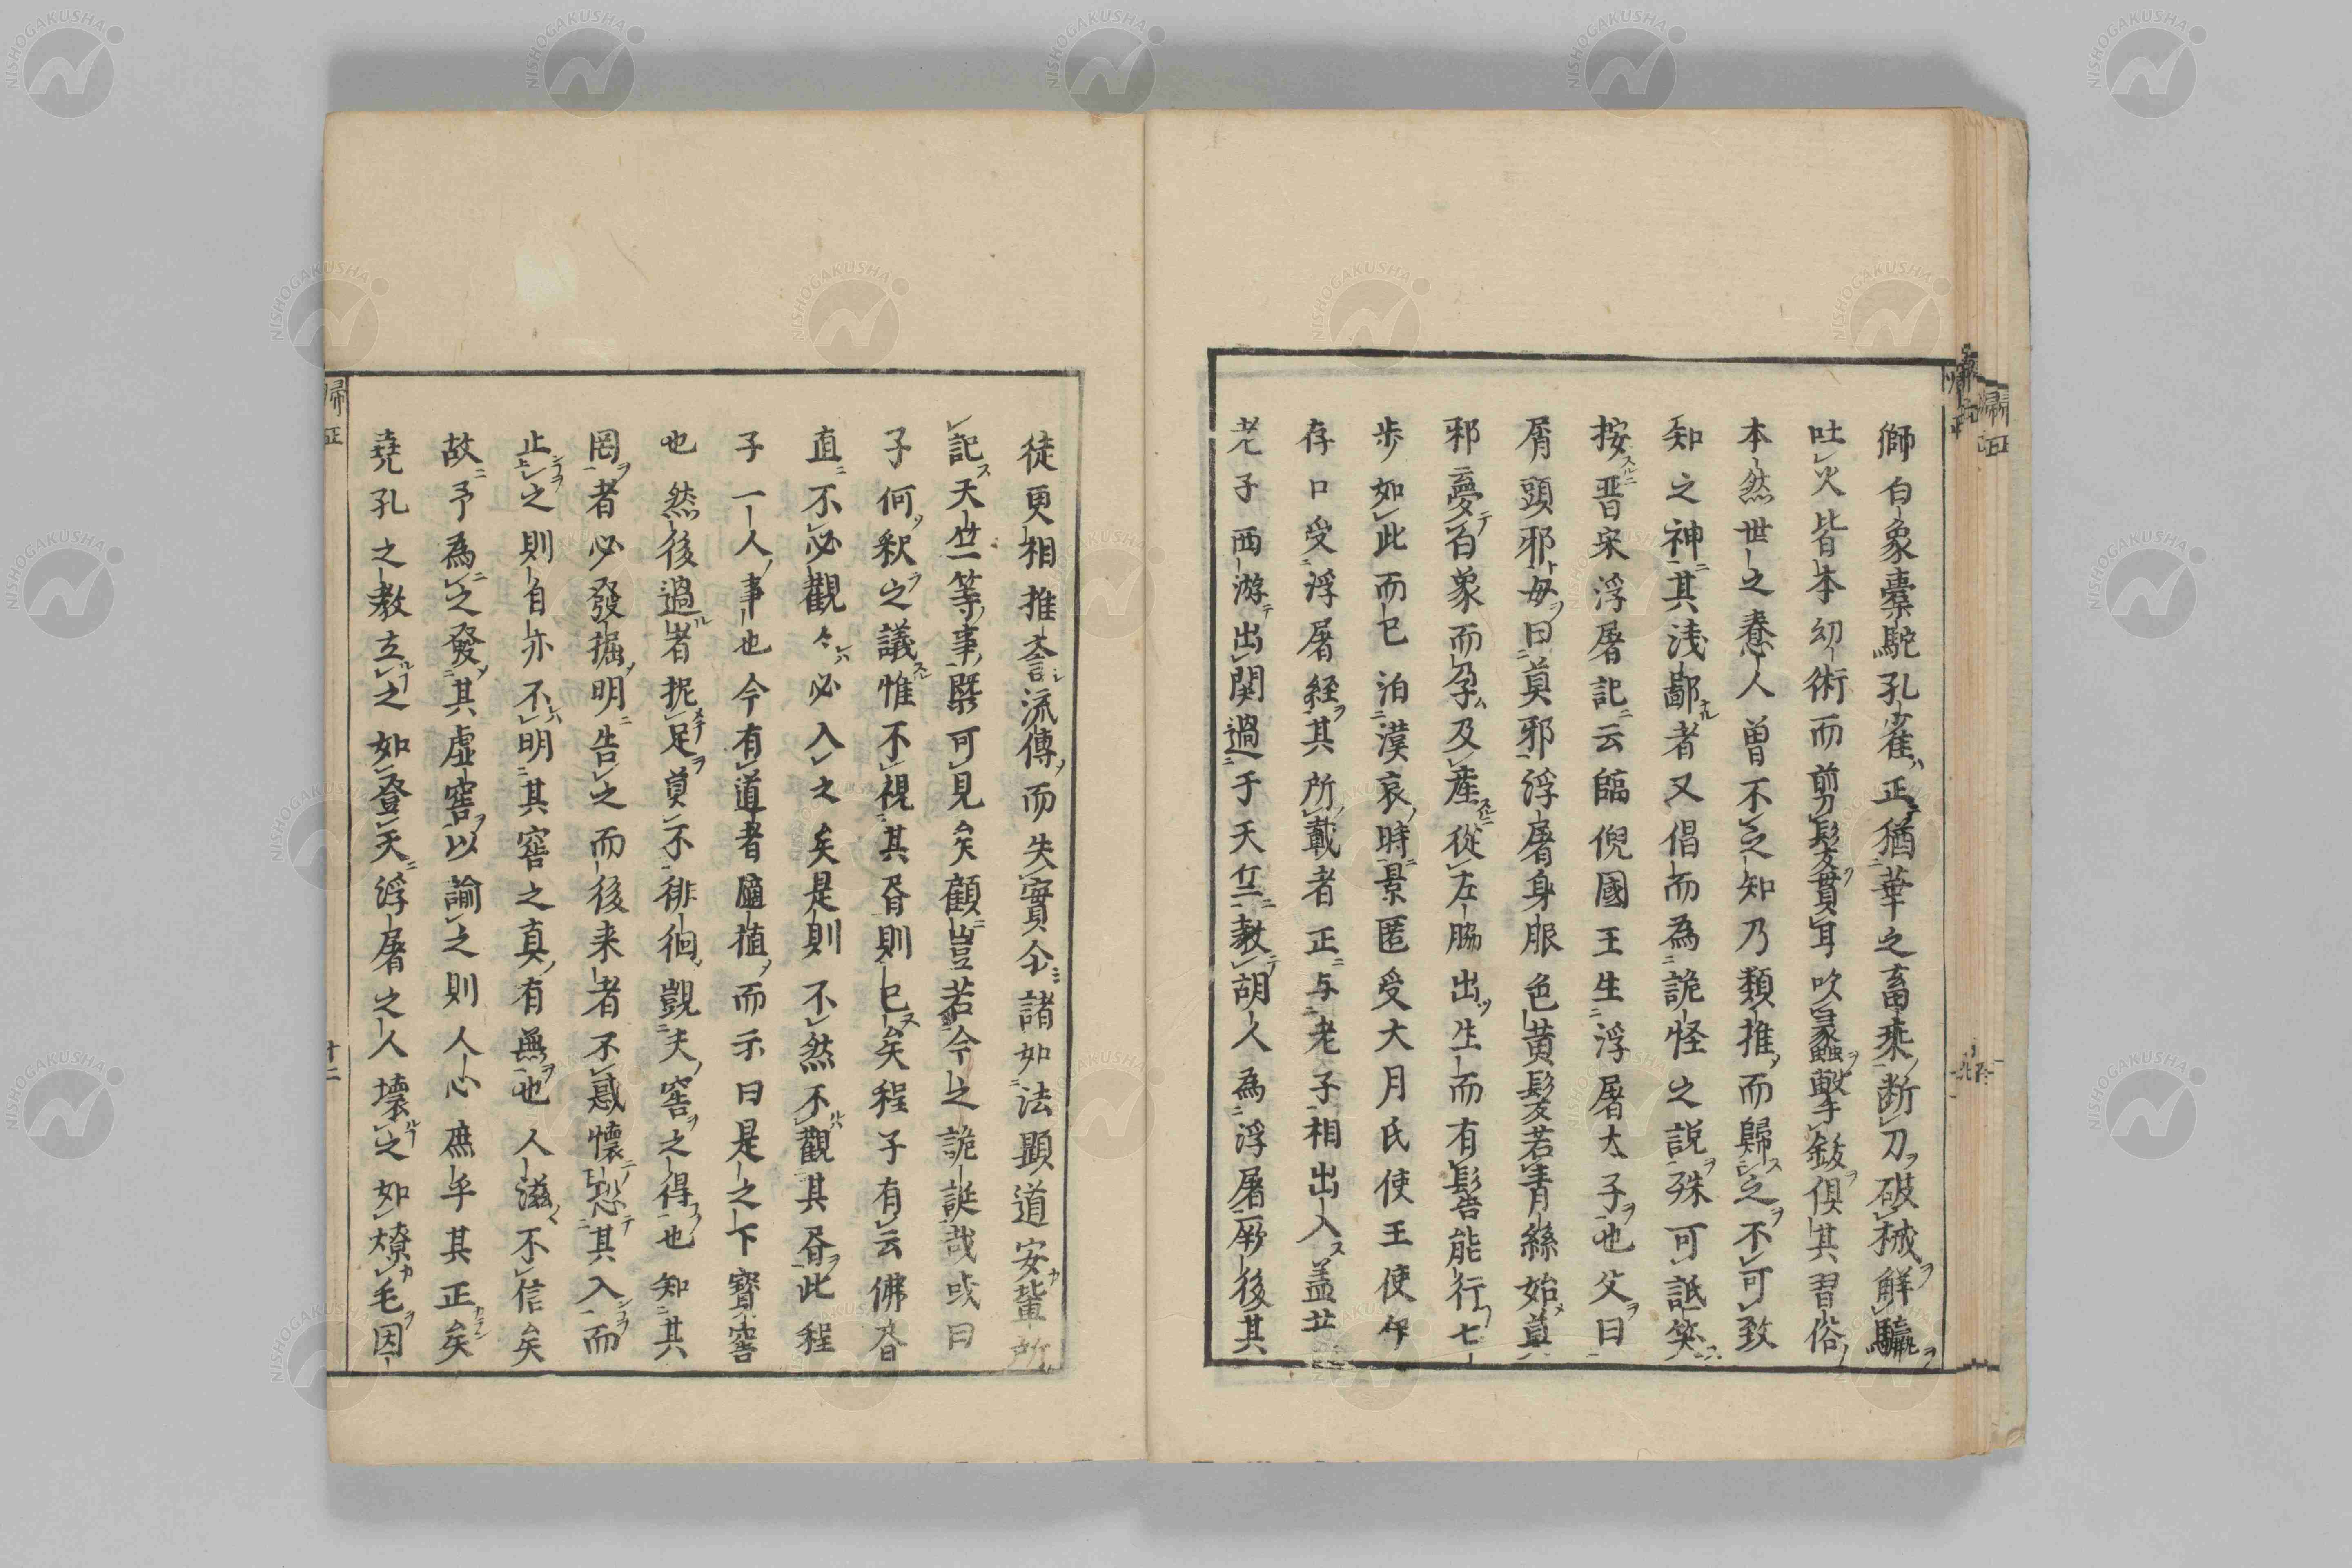 獅白象橐駝孔雀正猶華之畜乗断刀破械解驢
吐火皆本幻術而剪髮貫耳吹蠡擊鈸俱其習俗
本然世之惷人曽不之知乃類推而歸之不可致
知之神其浅鄙者又倡而為詭怪之説殊可詆笑
按晋宋浮屠記云臨倪國王生浮屠太子也父曰
屑頭邪毋曰莫邪浮屠身服色黄髮若青絲始莫
邪夢白象而孕及産從左脇出生而有髻能行七
歩如此而已洎漢哀時景匿受大月氏使王使伊
存口受浮屠経其所載者正与老子相出入盖廿
老子西游出関過于天竺教胡人為浮屠厥後其
徒更相推奓流傳而失實今諸如法顕道安軰所
記天竺等事槩可見矣顧豈若今之詭誕哉或曰
子何釈之議惟不視其昏則已矣程子有云佛昏
直不必觀々必入之矣是則不然不觀其昏此程
子一人事也今有道者隨植而示曰是之下寳窖
也然後過者抳足莫不徘徊覬夫窖之得也知其
罔者必發掘明告之而後来者不惑懐恐其入而
止之則自亦不明其窖之真有無也人滋不信矣
故予為之發其虚窖以諭之則人心庶乎其正矣
堯孔之教立之如登天浮屠之人壊之如燎毛因
歸正
十二